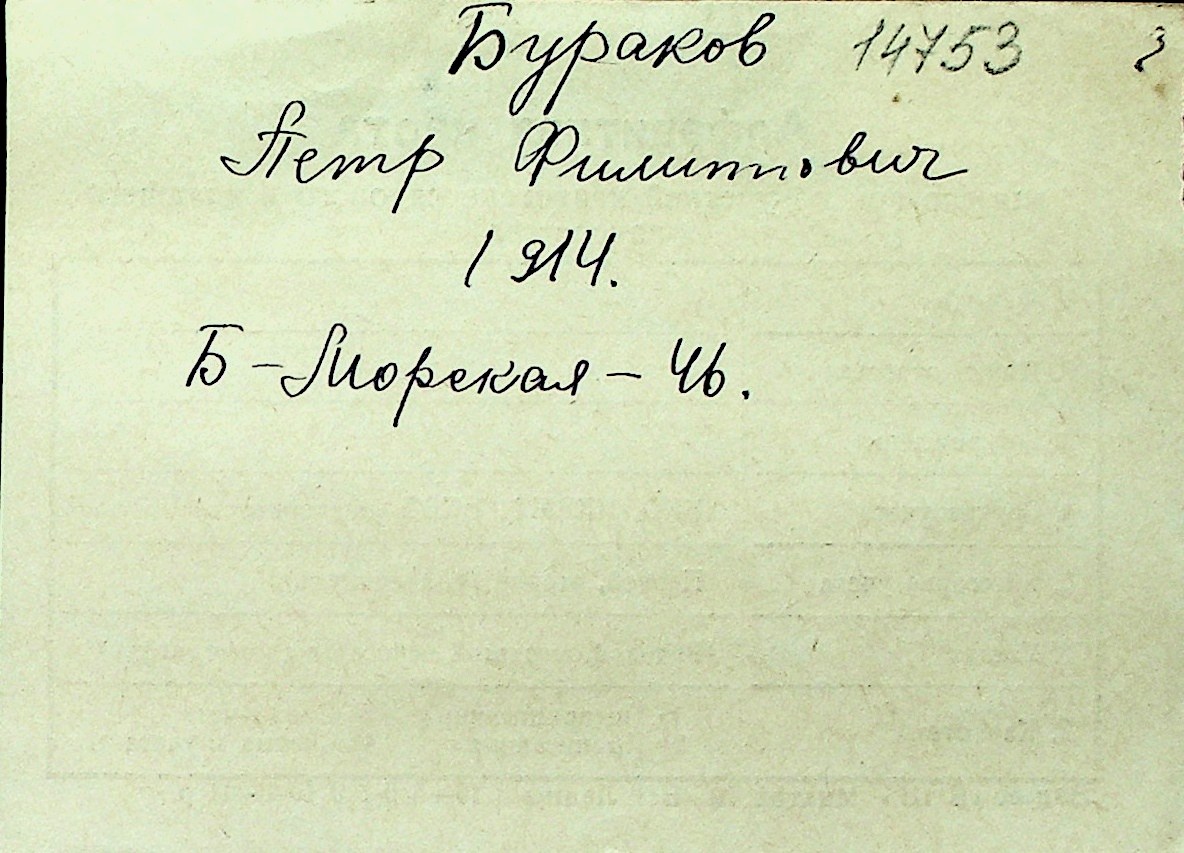 Бураков 14753
Петр Филиппович
1914.
Б-Морская-46.